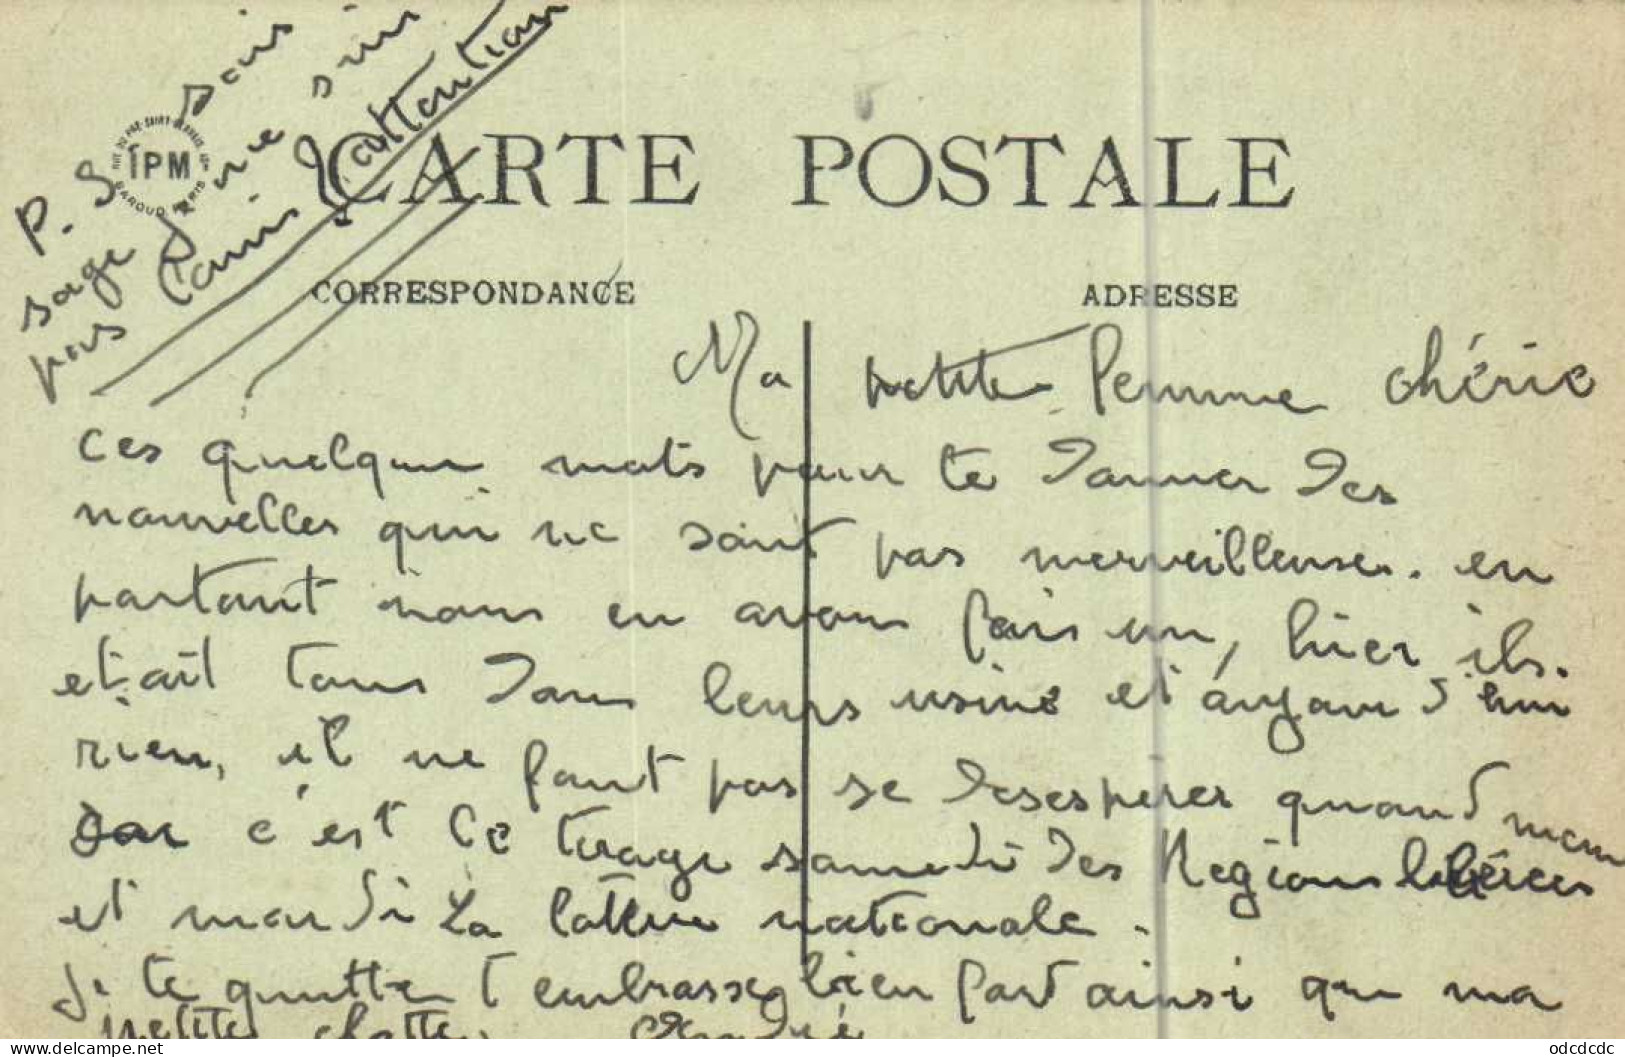 P. S. Sois
sage j'ne suis
pas
attention
RUE DU PRÉ-SAINT-GERVAIS
IPM
PARIS
CARTE POSTALE
CORRESPONDANCE
ADRESSE
Ma petite femme chérie
ces quelques mots pour te donner des
nouvelles qui ne sont pas merveilleuses. en
partant nous en avons fais un, hier ils.
etait tous dans leurs usine et aujourd'hui
rien, il ne faut pas se desespérer quand mem
car c'est le tirage samedi des Regions libérées
et mardi la lotterie nationale.
je te quitte t'embrasse bien fort ainsi que ma
petite chatte. André
odcdcdc